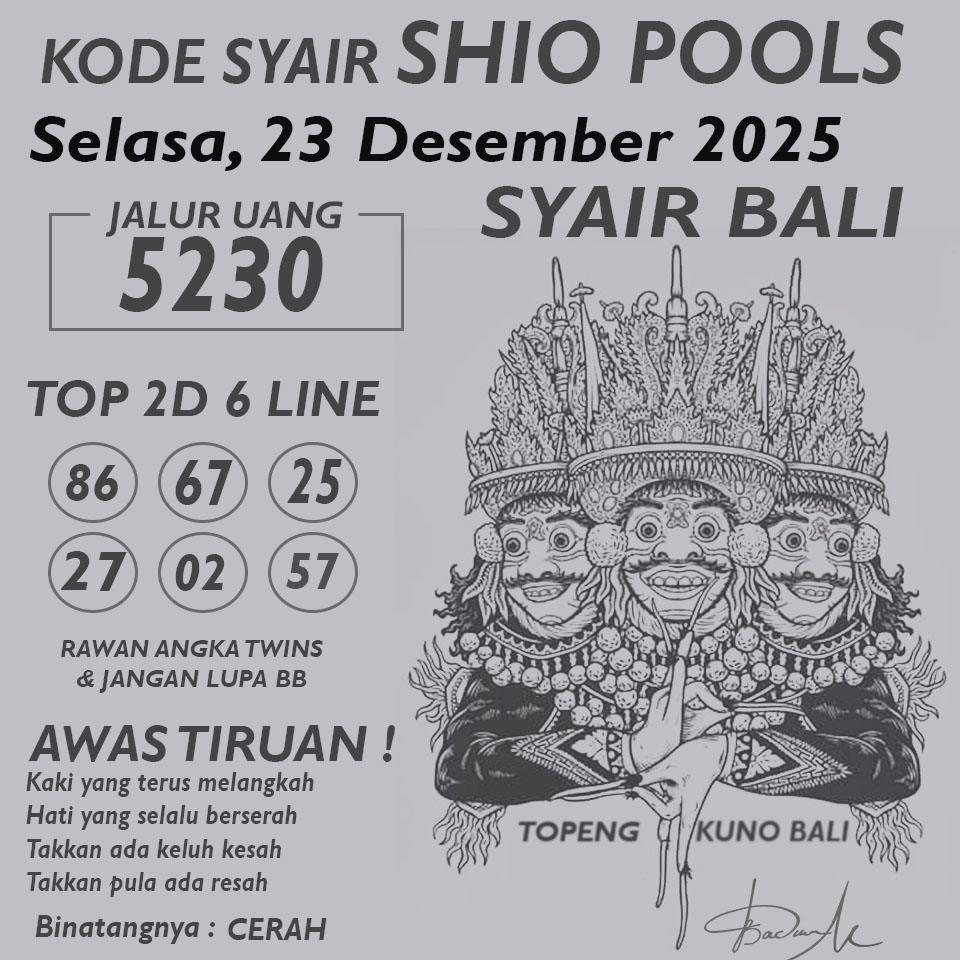 KODE SYAIR SHIO POOLS
Selasa, 23 Desember 2025
SYAIR BALI
JALUR UANG
5230
TOP 2D 6 LINE
86 67 25
27 02 57
RAWAN ANGKA TWINS
& JANGAN LUPA BB
AWAS TIRUAN !
Kaki yang terus melangkah
Hati yang selalu berserah
Takkan ada keluh kesah
Takkan pula ada resah
Binatangnya : CERAH
TOPENG KUNO BALI